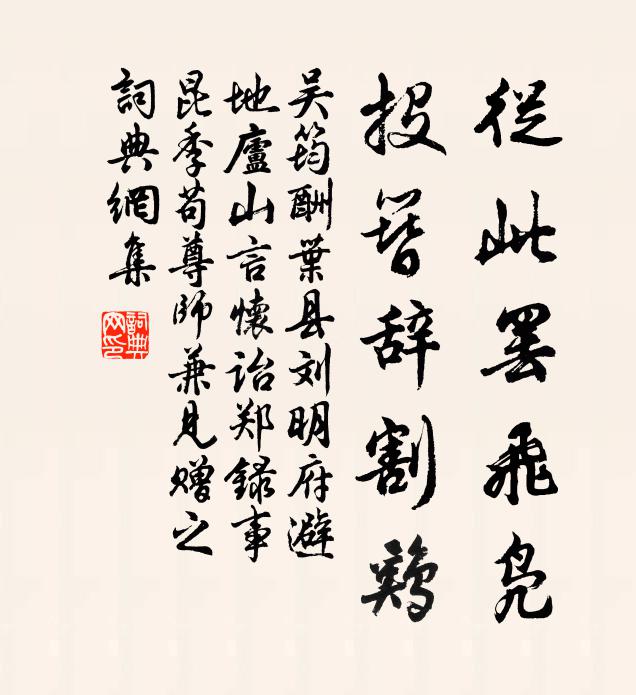 從此罢飛凫
投簪辞割鷄
吴筠酬葉县刘明府避
地廬山言懷诒郑録事
昆季苟尊師兼見赠之
詞典網集
詞典網印